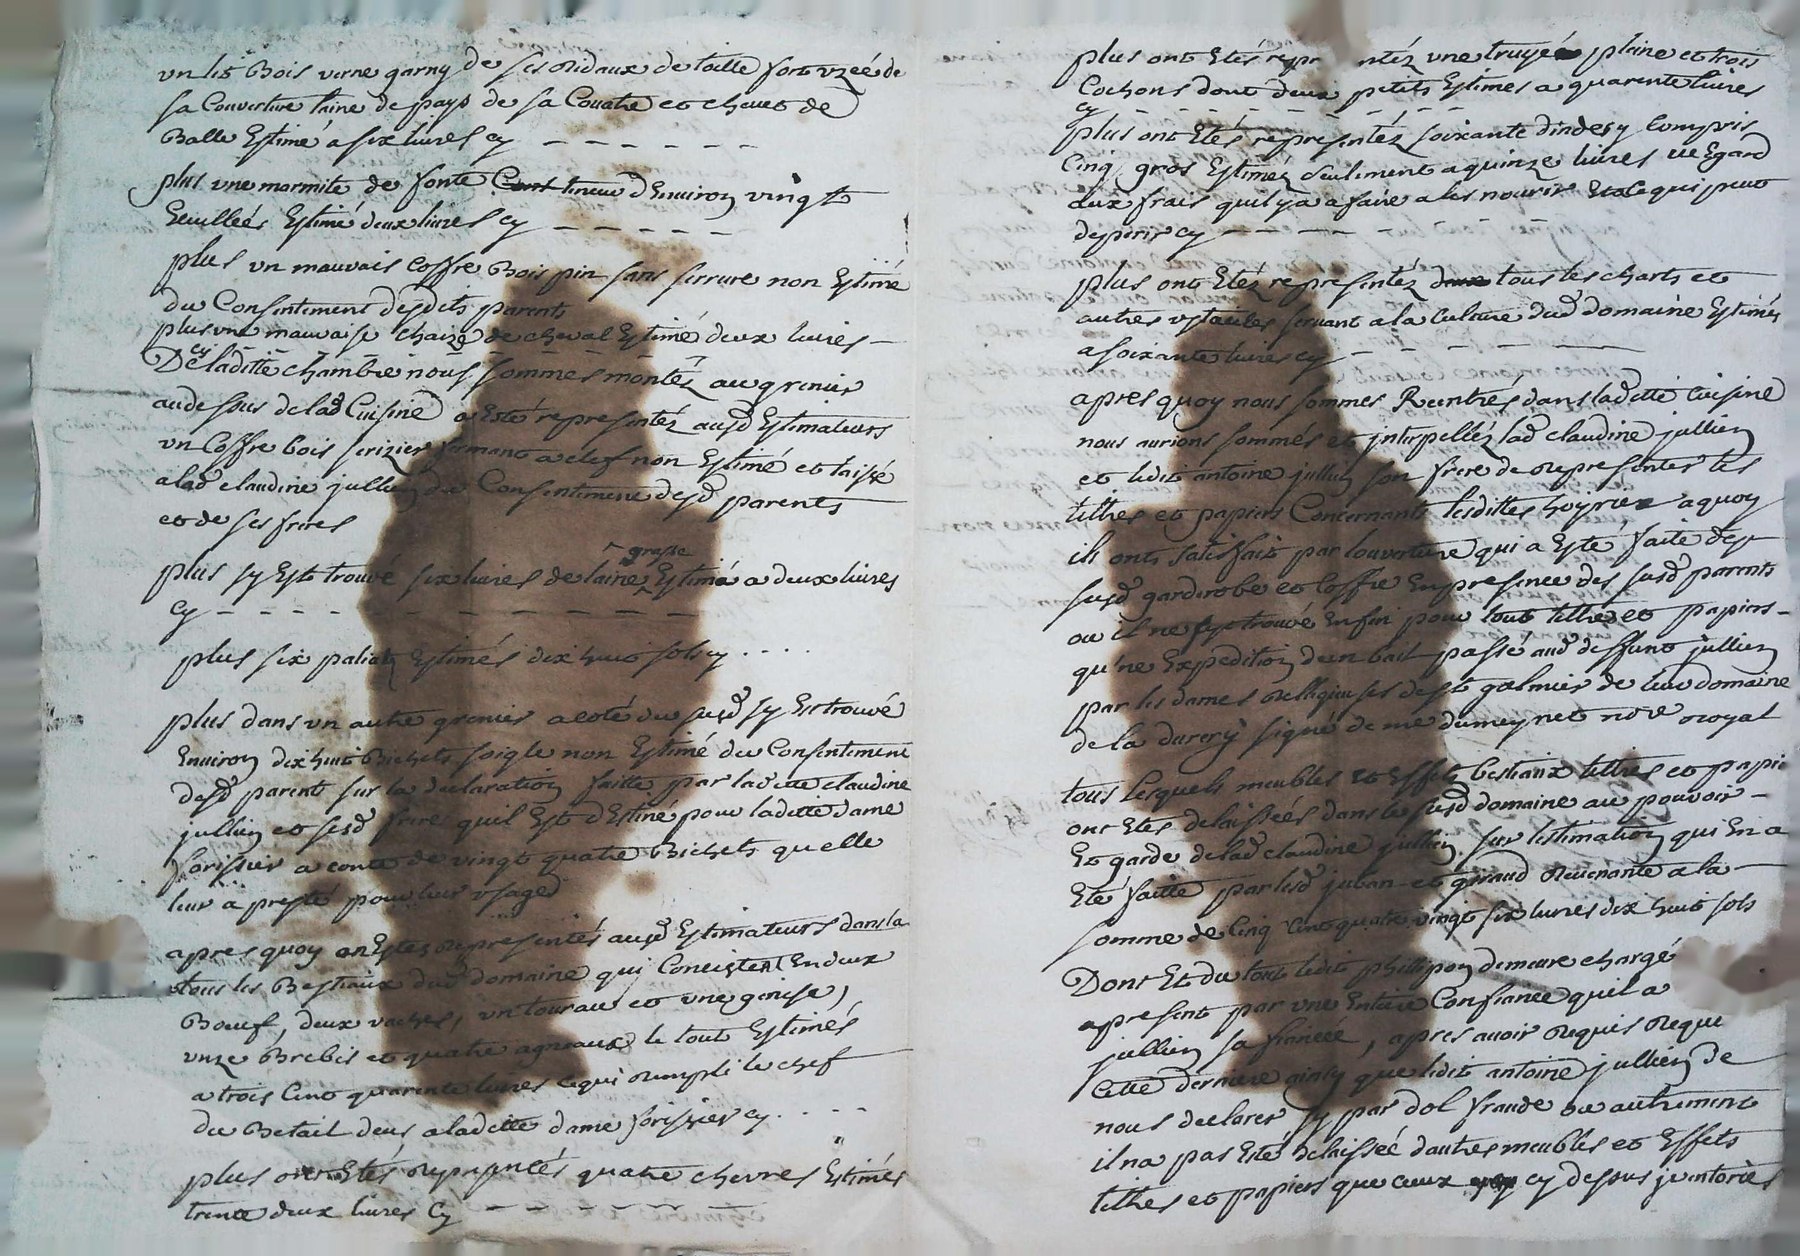 un lit Bois verne garny de ses Ridaux de toille fort uzéé de
sa Couverture laine de pays de sa Couatre et chevet de
Balle Estimé a six livres cy
plus une marmite de fonte Cont teneur d'Environ vingt
Ecuilleés Estimé deux livres cy
plus un mauvais Coffre Bois pin sans serrure non Estimé
du Consentiment desdits parents
plus une mauvaise chaize de cheval Estimé deux livres
cy
De laditte chambre nous sommes montéz au grenier
audessous de lad Cuisine a Esté representéz ausd Estimateurs
un Coffre bois serizier fermant a clef non Estimé et laissé
a lad claudine jullien du Consentiment desd parents
et de ses freres
plus sy Est trouvé six livres de laine grasse Estimé a deux livres
cy
plus six paliats Estimés dix huit sols cy
plus dans un autre grenier a coté du susd sy Est trouvé
Environ dix huit Bichets soigle non Estimé du Consentiment
desd parents sur la declaration faitte par laditte claudine
jullien et sesd frere quil Est dEstiné pour laditte dame
forissier a conte de vingt quatre Bichets quelle
leur a presté pour leur usage
apres quoy on Estes representés ausd Estimateurs dans la
tous les Bestiaux dud domaine qui Concistent En deux
Boeuf, deux vaches, un toraue et une genise,
unze Brebis et quatre agneaux le tout Estimés
a trois Cent quarente livres ce qui rempli le chef
du Betail deus a laditte dame forissier cy
plus ont Etés representés quatre chevres Estimés
trente deux livres Cy
plus ont Etés representéz une truye pleine et trois
Cochons dont deux petits Estimes a quarente livres
cy
plus ont Etés representéz soixante dindes y Compris
Cinq gros Estiméz seulement a quinze livres eu Egard
aux frais quil y a a faire a les nourir Et a ce qui peut
deperir cy
plus ont Etéz representéz deux tous les charts et
autres ustancles servant a la Culture dud domaine Estimés
a soixante livres cy
apres quoy nous sommes Rentrés dans laditte Cuisine
nous aurions sommés et jnterpelléz lad claudine jullien
et ledit antoine jullien son frere de representer les
tiltres et papiers Concernants lesdittes hoyries a quoy
ils ont satisfait par louverture qui a Esté faite des
susd garderobe et Coffre En presence des susd parents
ou il ne sye trouvé Enfin pour tout tiltre et papiers
qu'ne Expedition de un bail passé aud deffunt jullien
par les dames Relligieuses de st galmier de leur domaine
de la durery signé de me dumeynet nore royal
tous Lesquels meubles et Effets bestiaux tiltres et papie
ont Etes delaisséés dans le susd domaine au pouvoir
Et garde de lad claudine jullien sur lestimation qui En a
Eté faitte par lesd juban et giraud Revenante a la
somme de Cinq Cent quatre vingt six livres dix huit sols
Dont Et du tout ledit phillipon demeure chargé
apresent par une Entiere Confiance quil a
jullien sa fianceé, apres avoir Requis Reque
cette derniere ainsy que ledit antoine jullien de
nous declarer sy par dol fraude ou autrement
il na pas Eté delaissé dautres meubles et Effets
tiltres et papiers que ceux cy dessus jnvtoriés